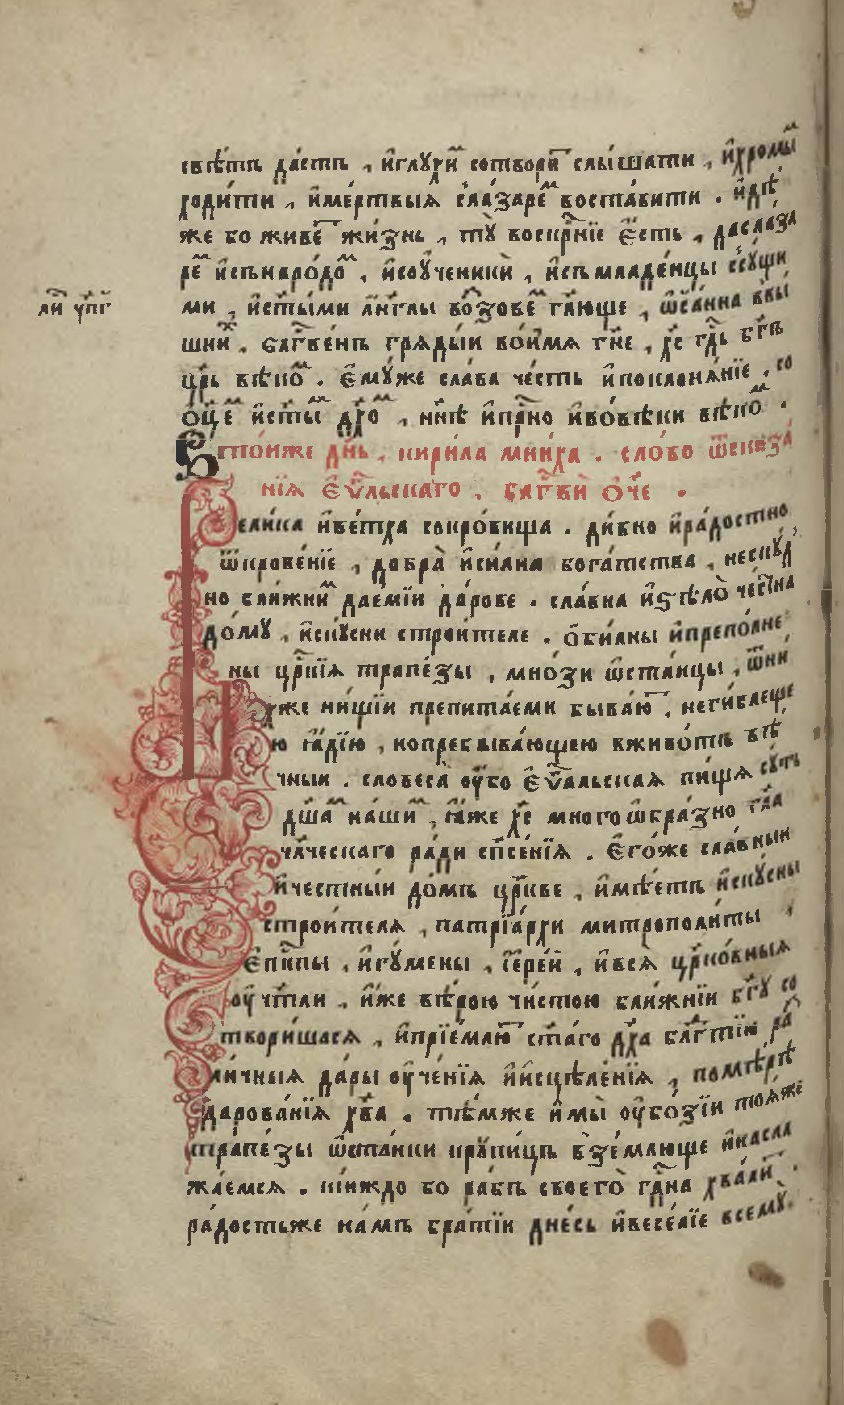 свѣ́тъ да́стъ , и҆глꙋхи̑м сотвори̑т слы́шати , и҆хромы̑м
ходи́ти , и҆ме́ртвыѧ сла́заре̑м воста́вити . и҆дѣ́
же бо живе̑т жи́знь , тꙋ̀ воскрⷭ҇нїе є҆́сть , даслаза
ре̑м и҆съ наро́до̑м , и҆соу҆ченики̑ , и҆съ младе́нцы ссꙋ́щи
ми , и҆сты́ми а҆́нг҃лы во҆зове̑м гл҃юще , ѡ҆са́нна ввы́
шни̑х . бл҃гⷭ҇ве́нъ грѧды́и во и҆́мѧ гⷭ҇не , хⷭ҇е гдⷭ҇ь бг҃ъ
цр҃ь вѣко̑м . є҆мꙋ́же сла́ва че́сть и҆поклонѧ́нїе , со
ѻ҆ц҃е̑м и҆ст҃ы̑м дх҃о̑м , нн҃ѣ и҆прⷭ҇но и҆вовѣ́ки вѣко̑м .
Втⷪ҇и́же дн҃ь , кири́ла мни́ха . сло́во ѿсказа
нїѧ є҆ѵⷢ҇льскаго . бл҃гⷭ҇ви̑ ѻ҆́ч҃е .
Вели́ка и҆ве́тха сокро́вища . ди́вно и҆ра́достно
ѿкрове́нїе , добра̀ и҆си́лна бога́тства , неску́д
но бли́жни̑м дае́мїи да́рове . сла́вна и҆ѕѣло̀ че́стна
до́мꙋ , и҆скꙋ́сни строи́теле . ѻ҆би́лны и҆препо́лне
ны црⷭ҇кїѧ трапе́зы , мно́зи ѿста́нцы , ѿни
хꙋже ни́щїи препита́еми быва́ю̑т , неги́блеще
ю ꙗ҆́дїю , но пребыва́ющею вживо́тъ вѣ́
чныи . словеса̀ оу҆́бо є҆ѵⷢ҇альскаѧ пи́ща сꙋ́ть
дш҃а̑м на́ши̑м , ꙗ҆́же хⷭ҇е многоѡ҆бра́зно гл҃а
чл҃ческаго ра́ди сп҃се́нїѧ . є҆го́же сла́вныи
и҆че́стныи до́мъ цр҃кве , и҆мѣ́етъ и҆скꙋсны
строи́телѧ , патрїа́рхи митрополи́ты ,
є҆пⷭ҇кпы , и҆гꙋ́мены , і҆ере́й , и҆всѧ̀ цр҃ко́вныѧ
оу҆чт҃ли , и҆́же вѣ́рою чи́стою бли́жнїи бг҃ꙋ со
твори́шасѧ , и҆прїе́млю̑т ст҃а́го дх҃а бл҃гⷣтїю ра
зли́чныѧ да́ры оу҆че́нїѧ и҆и҆сцѣле́нїѧ , помѣ́рѣ
дарова́нїѧ хв҃а . тѣ́мже и҆мы̀ оу҆бо́зїи тоѧ́же
трапе́зы ѿста́нки крꙋпи́цъ взе́млюще и҆насла
жа́емсѧ . кі́иждо бо ра́бъ своего̀ гдⷭ҇на хва́ли̑т .
ра́достьже на́мъ бра́тїи дне́сь и҆весе́лїе всемꙋ̀
ли̑с уп҃г